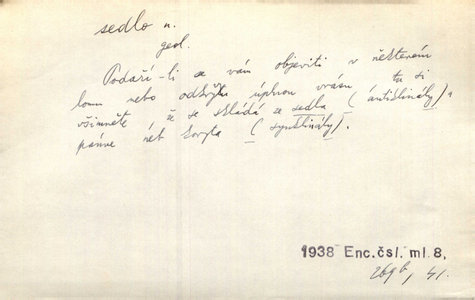 sedlo n.
geol.
Podaří-li se vám objeviti v některém
lomu nebo odkryvu úplnou vrásu, tu si
všimněte, že se skládá ze sedla (antiklinály) a
pánve neb koryta (synklinály).
1938 Enc. čsl. ml. 8,
269 b, 41.